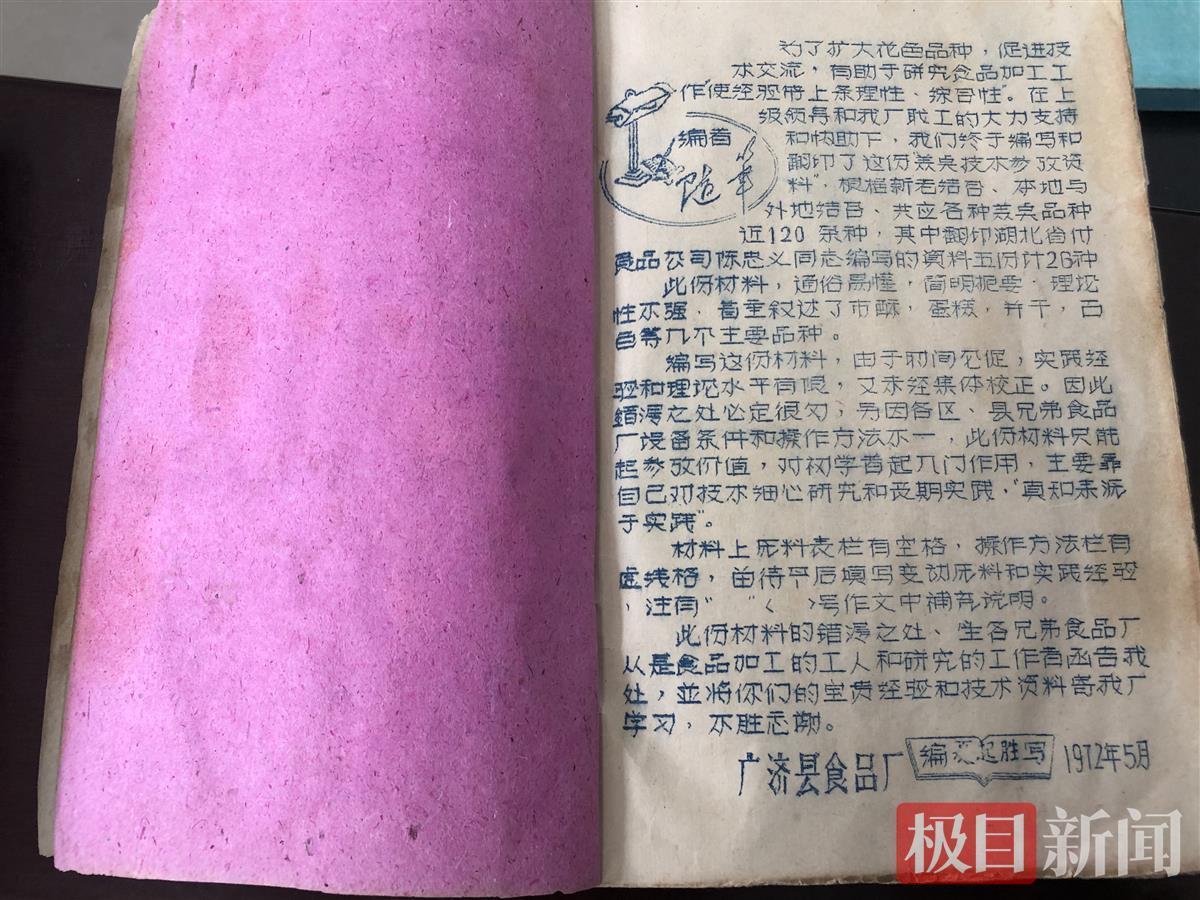 为了扩大花色品种，促进技
术交流，有助于研究食品加工工
作"使经验带上条理性、综合性"。在上
级领导和我厂职工的大力支持
和快助下，我们终于编写和
翻印了这份"美点技术参考资
料"，根据新老结合、本地与
外地结合、共应各种美点品种
近120余种，其中翻印湖北省付
食品公司陈忠义同志编写的资料五份计26种
编者
随笔
此份材料，通俗易懂，简明扼要·理论
性不强．着重叙述了市酥，蛋糕，并干，白
色等几个主要品种。
编写这份材料，由于时间仓促，实践经
验和理论水平有限，又未经集体校正。因此
错漏之处必定很多，另因各区、县兄弟食品
厂设备条件和操作方法不一，此份材料只能
起参考价值，对初学者起入门作用，主要靠
自己对技术细心研究和长期实践，"真知来源
于实践"。
材料上原料表栏有空格，操作方法栏有
虚线格，留待今后填写变动原料和实践经验
，注有" " "〈 〉"号作文中补充说明。
此份材料的错漏之处、望各兄弟食品厂
从是食品加工的工人和研究的工作者函告我
处，並将你们的宝贵经验和技术资料寄我厂
学习，不胜忎谢。
广济县食品厂 编 胜写 1972年5月
极目新闻